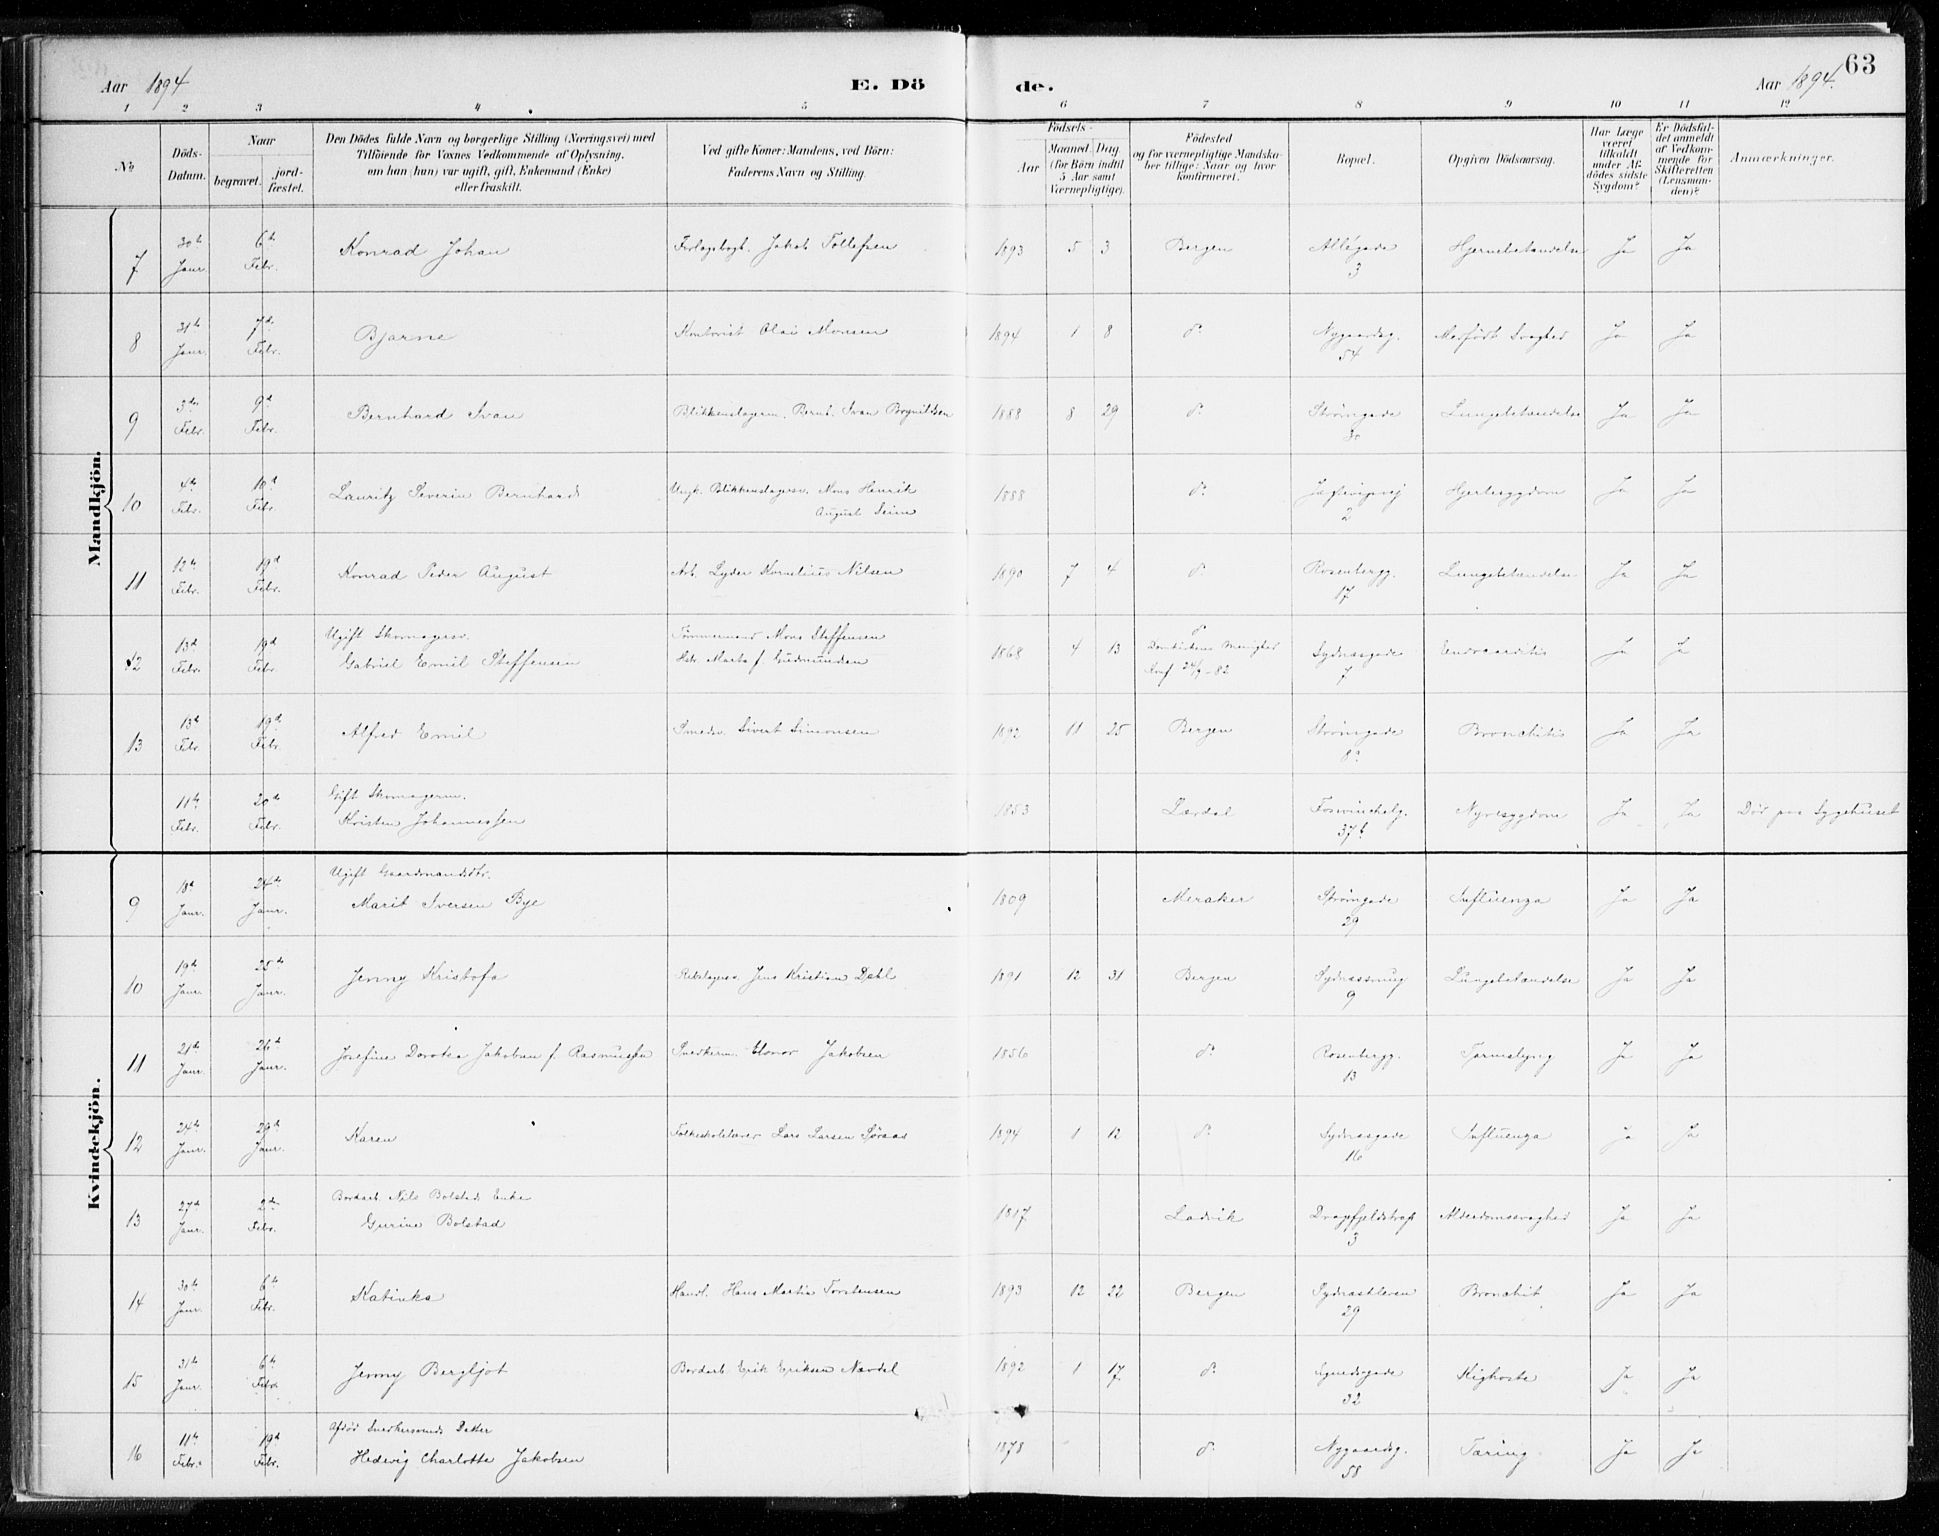 Aar 1894
E. Dö
de.
Aar 1894.
63
1 2 3 4 5 6 7 8 9 10 11 12
No
Döds-Datum.
Naar
begravet.
jordfæstet.
Den Dödes fulde Navn og borgerlige Stilling (Næringsvei) med
Tilföiende for Voxnes Vedkommende af Oplysning,
om han (hun) var ugift, gift, Enkemand (Enke)
eller fraskilt.
Ved gifte Koner: Mandens, ved Börn:
Faderens Navn og Stilling.
Födsels-
Aar
Maaned. Dag
(for Börn indtil
5 Aar samt
Værnepligtige).
Födested
og for værnepligtige Mandska-
ber tillige: Naar og hvor
konfirmeret.
Bopæl.
Opgiven Dödsaarsag.
Har Læge
været
tilkaldt
under Af-
dödes sidste
Sygdom?
Er Dödsfal-
det anmeldt
af Vedkom-
mende for
Skifteretten
(Lensman-
den)?
Anmærkninger.
Mandkjön.
7 30te Janr. 6te Febr. Konrad Johan Jakob Tollefsen 1893 5 3 Bergen Allégade 3 Hjernebetændelse Ja Ja
8 31te Janr. 7de Febr. Bjarne Kontorist Olai Monsen 1894 1 8 do Nygaardsg. 54 Medfödt Svaghed Ja Ja
9 3die Febr. 9de Febr. Bernhard Ivan Blikkenslagerm. Bernt Ivan 1888 8 29 do Strömgade Lungebetændelse Ja Ja
10 4de Febr. 10de Febr. Lauritz Severin Bernhard Ungk. Blikkenslagersv. Mons Henrik
August Seim 1888 do 2 Hjertesygdom Ja Ja
11 12te Febr. 19de Febr. Konrad Peder August Arb. Lyder Kornelius Nilsen 1890 7 4 do Rosenbergg. 17 Lungebetændelse Ja Ja
12 13de Febr. 19de Febr. Ugift Skomagersv.
Gabriel Emil Steffensen Tömmermand Mons Steffensen
Marta f. Gudmundsen 1868 4 13 do
Domkirkens Menighed
Konf 24/9-82 Sydnæsgade 7 Endocarditis Ja Ja
13 13de Febr. 19de Febr. Alfred Emil Smedsv. Sivert Simonsen 1892 11 25 Bergen Strömgade 8a Bronchitis Ja Ja
11te Febr. 20de Febr. Gift Skomagerm.
Kristen Johannessen 1853 Lærdal 37b Nyresygdom Ja Ja Död paa Sygehuset
Kvindekjön.
9 18de Janr. 24de Janr. Ugift Gaardmandsdtr.
Marit Iversen Bye 1809 Meraker Strömgade 29 Influenza Ja Ja
10 19de Janr. 25de Janr. Jenny Kristofa Rebslagersv. Jens Kristian Dahl 1891 12 31 Bergen Sydnæssmug 9 Lungebetændelse Ja Ja
11 21de Janr. 26de Janr. Josefine Dorotea Jakobsen f. Rasmussen Snedkerm. Jakobsen 1856 do Rosenbergg. 13 Tarmslyng Ja Ja
12 24de Janr. 29de Janr. Karen Folkeskolelærer Lars Larsen Söraas 1894 1 12 do Sydnæsgade 16 Influenza Ja Ja
13 27de Janr. 2den Febr. Bordarb. Nils Bolstads Enke
Gurine Bolstad 1817 Ladvik 3 Alderdomssvaghed Ja Ja
14 30te Janr. 6te Febr. Katinka Handl. Hans Martin Torstensen 1893 12 22 Bergen Sydnæskleven 29 Bronchit Ja Ja
15 31te Janr. 6te Febr. Jenny Bergljot Bordarb. Erik Eriksen Nævdal 1892 1 17 do 32 Kighoste Ja Ja
16 11te Febr. 19de Febr. Afdöd Snedkersvends Datter
Hedevig Charlotte Jakobsen 1878 do Nygaardsg. 58 Tæring Ja Ja